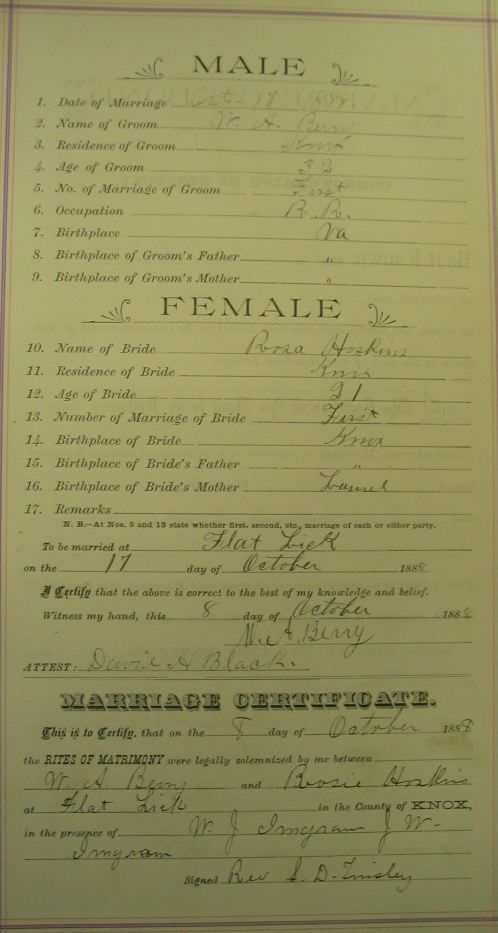 MALE
1. Date of Marriage Oct 17 1888
2. Name of Groom W. A. Berry
3. Residence of Groom Knox
4. Age of Groom 32
5. No. of Marriage of Groom First
6. Occupation R. R.
7. Birthplace Va
8. Birthplace of Groom's Father "
9. Birthplace of Groom's Mother "
FEMALE
10. Name of Bride Rosa Hoskins
11. Residence of Bride Knox
12. Age of Bride 21
13. Number of Marriage of Bride First
14. Birthplace of Bride Knox
15. Birthplace of Bride's Father "
16. Birthplace of Bride's Mother Laurel
17. Remarks
N. B.—At Nos. 5 and 13 state whether first, second, etc., marriage of each or either party.
To be married at Flat Lick
on the 17 day of October 1888
I Certify that the above is correct to the best of my knowledge and belief.
Witness my hand, this 8 day of October 1888
A. Berry
ATTEST: David H Black.
MARRIAGE CERTIFICATE.
This is to Certify, that on the 8 day of October 1888
the RITES OF MATRIMONY were legally solemnized by me between
W. A. Berry and Hoskins
at Flat Lick in the County of KNOX,
in the presence of W. J Imgram J W-
Imgram
Signed Rev S. D. Tinsley